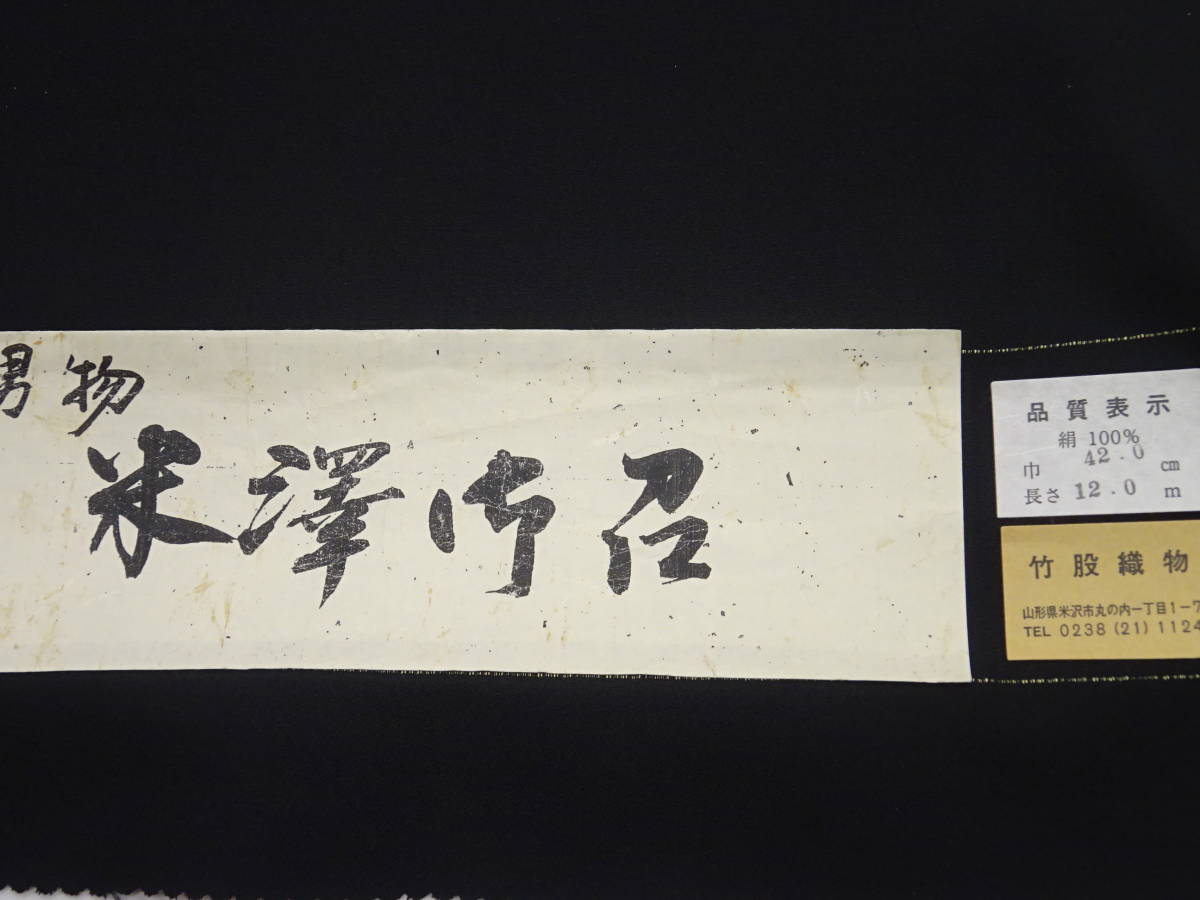 男物
米澤御召
品質表示
絹 100%
巾 42.0 cm
長さ 12.0 m
竹股織物
山形県米沢市丸の内一丁目1-7
TEL 0238 (21) 1124